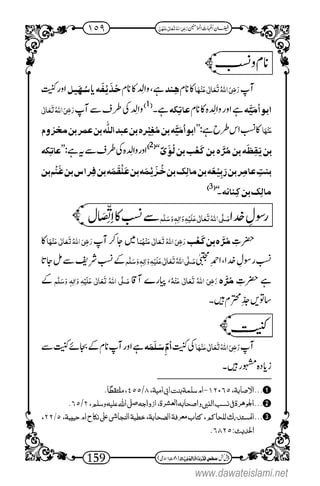 فیضانِ امہات المؤمنین رَضِیَ اللہُ تَعَالٰی عَنْہُنَّ ۱۵۹
نام ونسب
آپ رَضِیَ اللہُ تَعَالٰی عَنْہَا کا نام ھِنْد ہے، والد کا نام حُذَیْفَہ یا سُہَیْل اور کنیت
ابواُمَیَّہ ہے اور والدہ کا نام عاتِکہ ہے۔(1) والد کی طرف سے آپ رَضِیَ اللہُ تَعَالٰی
عَنْہَا کا نسب اس طرح ہے: ”ابواُمَیَّہ بن مُغِیْرَہ بن عبد اللہ بن عمر بن مخزوم
بن یَقَظَہ بن مُرَّہ بن کَعْب بن لُؤَیّ“(2) اور والدہ کی طرف سے یہ ہے: ”عاتِکہ
بنتِ عامِر بن رَبِیْعَہ بن مالِک بن خُزَیْمَہ بن عَلْقَمَہ بن فِراس بن غَنْم بن
مالِک بن کِنانہ۔“(3)
رسولِ خدا صَلَّی اللہُ تَعَالٰی عَلَیْہِ وَاٰلِہٖ وَسَلَّم سے نسب کا اِتِّصَال
حضرتِ مُرَّہ بن کَعْب رَضِیَ اللہُ تَعَالٰی عَنْہُمَا میں جا کر آپ رَضِیَ اللہُ تَعَالٰی عَنْہَا کا
نسب رسولِ خدا، احمدِ مجتبیٰ صَلَّی اللہُ تَعَالٰی عَلَیْہِ وَاٰلِہٖ وَسَلَّم کے نسب شریف سے مل جاتا
ہے حضرتِ مُرَّہ رَضِیَ اللہُ تَعَالٰی عَنْہُ، پیارے آقا صَلَّی اللہُ تَعَالٰی عَلَیْہِ وَاٰلِہٖ وَسَلَّم کے
ساتویں جدِّ محترم ہیں۔
کنیت
آپ رَضِیَ اللہُ تَعَالٰی عَنْہَا کی کنیت اُمِّ سَلَمَہ ہے اور آپ نام کے بجائے کنیت سے
زیادہ مشہور ہیں۔
1...الاصابة، ۱۲۰۶۵-ام سلمة بنت ابی امية، ۸/۴۵۵، ملتقطًا.
2...الجوهرة فی نسب النبی واصحابه العشرة، ازواجه صلی اللہ علیه وسلم، ۲/۶۵.
3...المستدرك للحاكم، كتاب معرفة الصحابة، خطبة النجاشی علی نكاح ام حبيبة، ۵/۲۲،
الحديث: ۶۸۲۵.
159
www.dawateislami.net